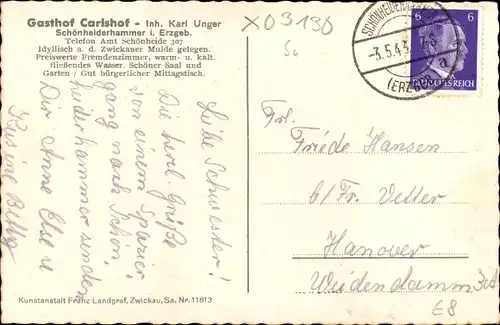 Gasthof Carlshof - Inh. Karl Unger
Schönheiderhammer i. Erzgeb.
Telefon Amt Schönheide 307
Idyllisch a. d. Zwickauer Mulde gelegen.
Preiswerte Fremdenzimmer, warm- u. kalt.
fließendes Wasser. Schöner Saal und
Garten / Gut bürgerlicher Mittagstisch.
Liebe Schwester!
Die herzl. Grüße
von einem Spazier
gang nach Schön
heiderhammer senden
Dir Anne Else u
X03130
-3.5.43
a
(ERZGEB)
6 6
Frl.
Friede Hansen
b/Fr. Vetter
Hanover
Weidendamm
E8
Kunstanstalt Franz Landgraf, Zwickau, Sa. Nr. 11813